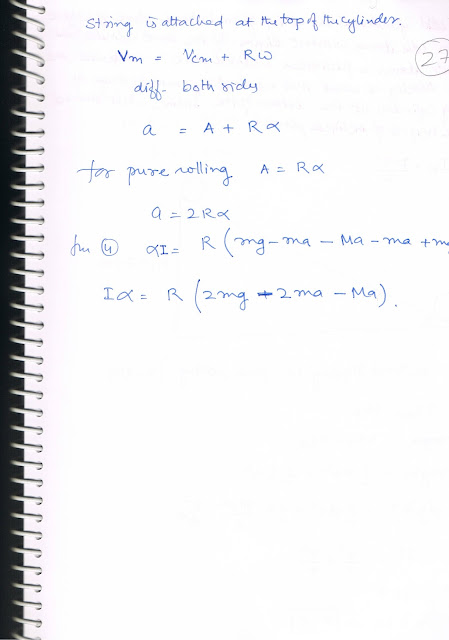 string is attached at the top of the cylinder.
Vm = Vcm + Rω
27
diff. both sides
a = A + Rα
for pure rolling A = Rα
a = 2Rα
from (4) αI = R (mg - ma - Ma - ma + mg
Iα = R (2mg - 2ma - Ma).